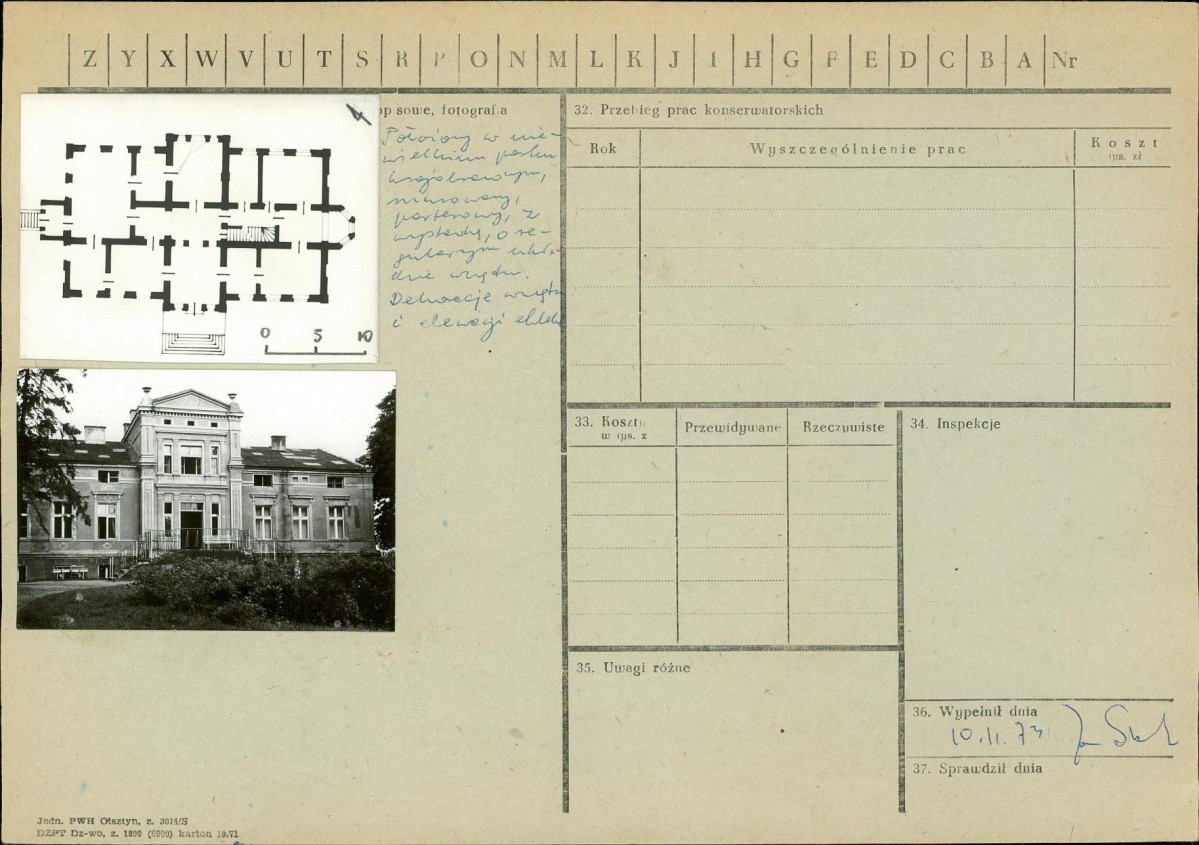 Z Y X W V U T S R P O N M L K J I H G F E D C B A Nr
op sowe, fotografia
Położony w nie-
wielkim parku
krajobrazowym,
murowany,
parterowy, z
wystawką, o re-
gularnym ukła-
dzie wnętrz.
Dekoracje wnętrz
i elewacji
0 5 10
32. Przebieg prac konserwatorskich
Rok
Wyszczególnienie prac
Koszt
tys. zł
33. Koszty
w tys. z
Przewidywane
Rzeczywiste
34. Inspekcje
35. Uwagi różne
36. Wypełnił dnia
10.11.73
37. Sprawdził dnia
Jedn. PWH Olsztyn, z. 3014/S
DZPT Dz-wo, z. 1890 (6000) karton 10.71